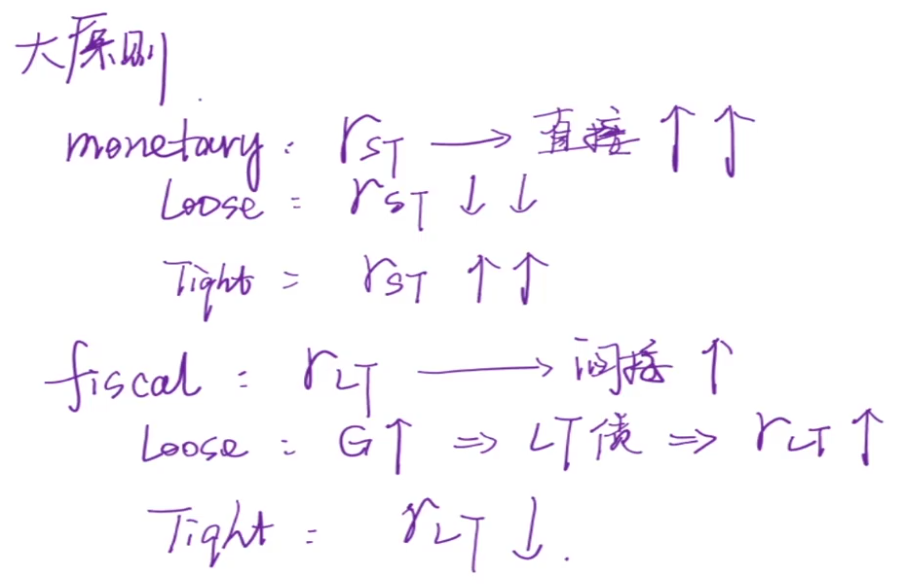 大原则.
monetary : r_ST → 直接 ↑↑
Loose : r_ST ↓↓
Tight = r_ST ↑↑
fiscal : r_LT → 间接 ↑
Loose : G↑ ⇒ LT债 ⇒ r_LT ↑
Tight : r_LT ↓.